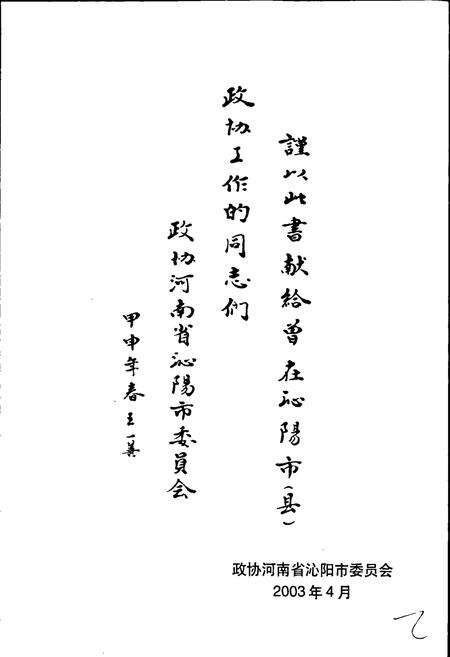 謹以此書献给曾在沁陽市(县)
政协工作的同志们
政协河南省沁陽市委員会
甲申年春王
政协河南省沁阳市委员会
2003年4月